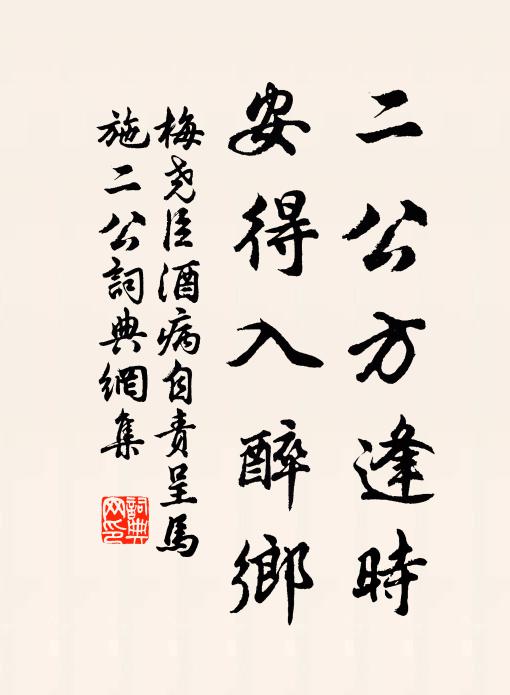 二公方逢時
安得入醉鄉
梅堯臣酒病自責呈馬
施二公詞典網集
詞典
网印